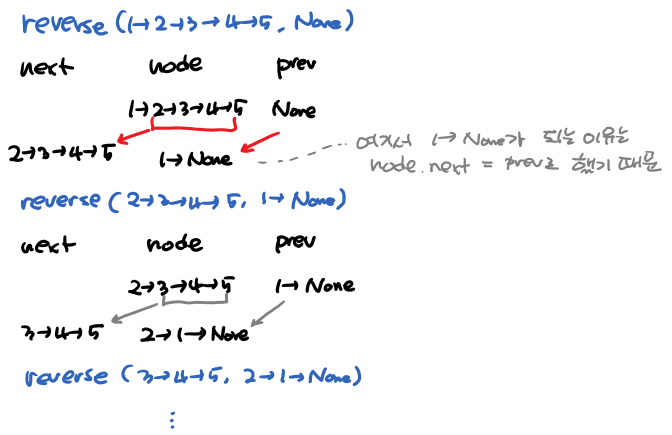 reverse (1→2→3→4→5, None)
next node prev
1→2→3→4→5 None
2→3→4→5 1→None
여기서 1→None가 되는 이유는
node.next = prev로 했기 때문
reverse (2→3→4→5, 1→None)
next node prev
2→3→4→5 1→None
3→4→5 2→1→None
reverse (3→4→5, 2→1→None)
⋮